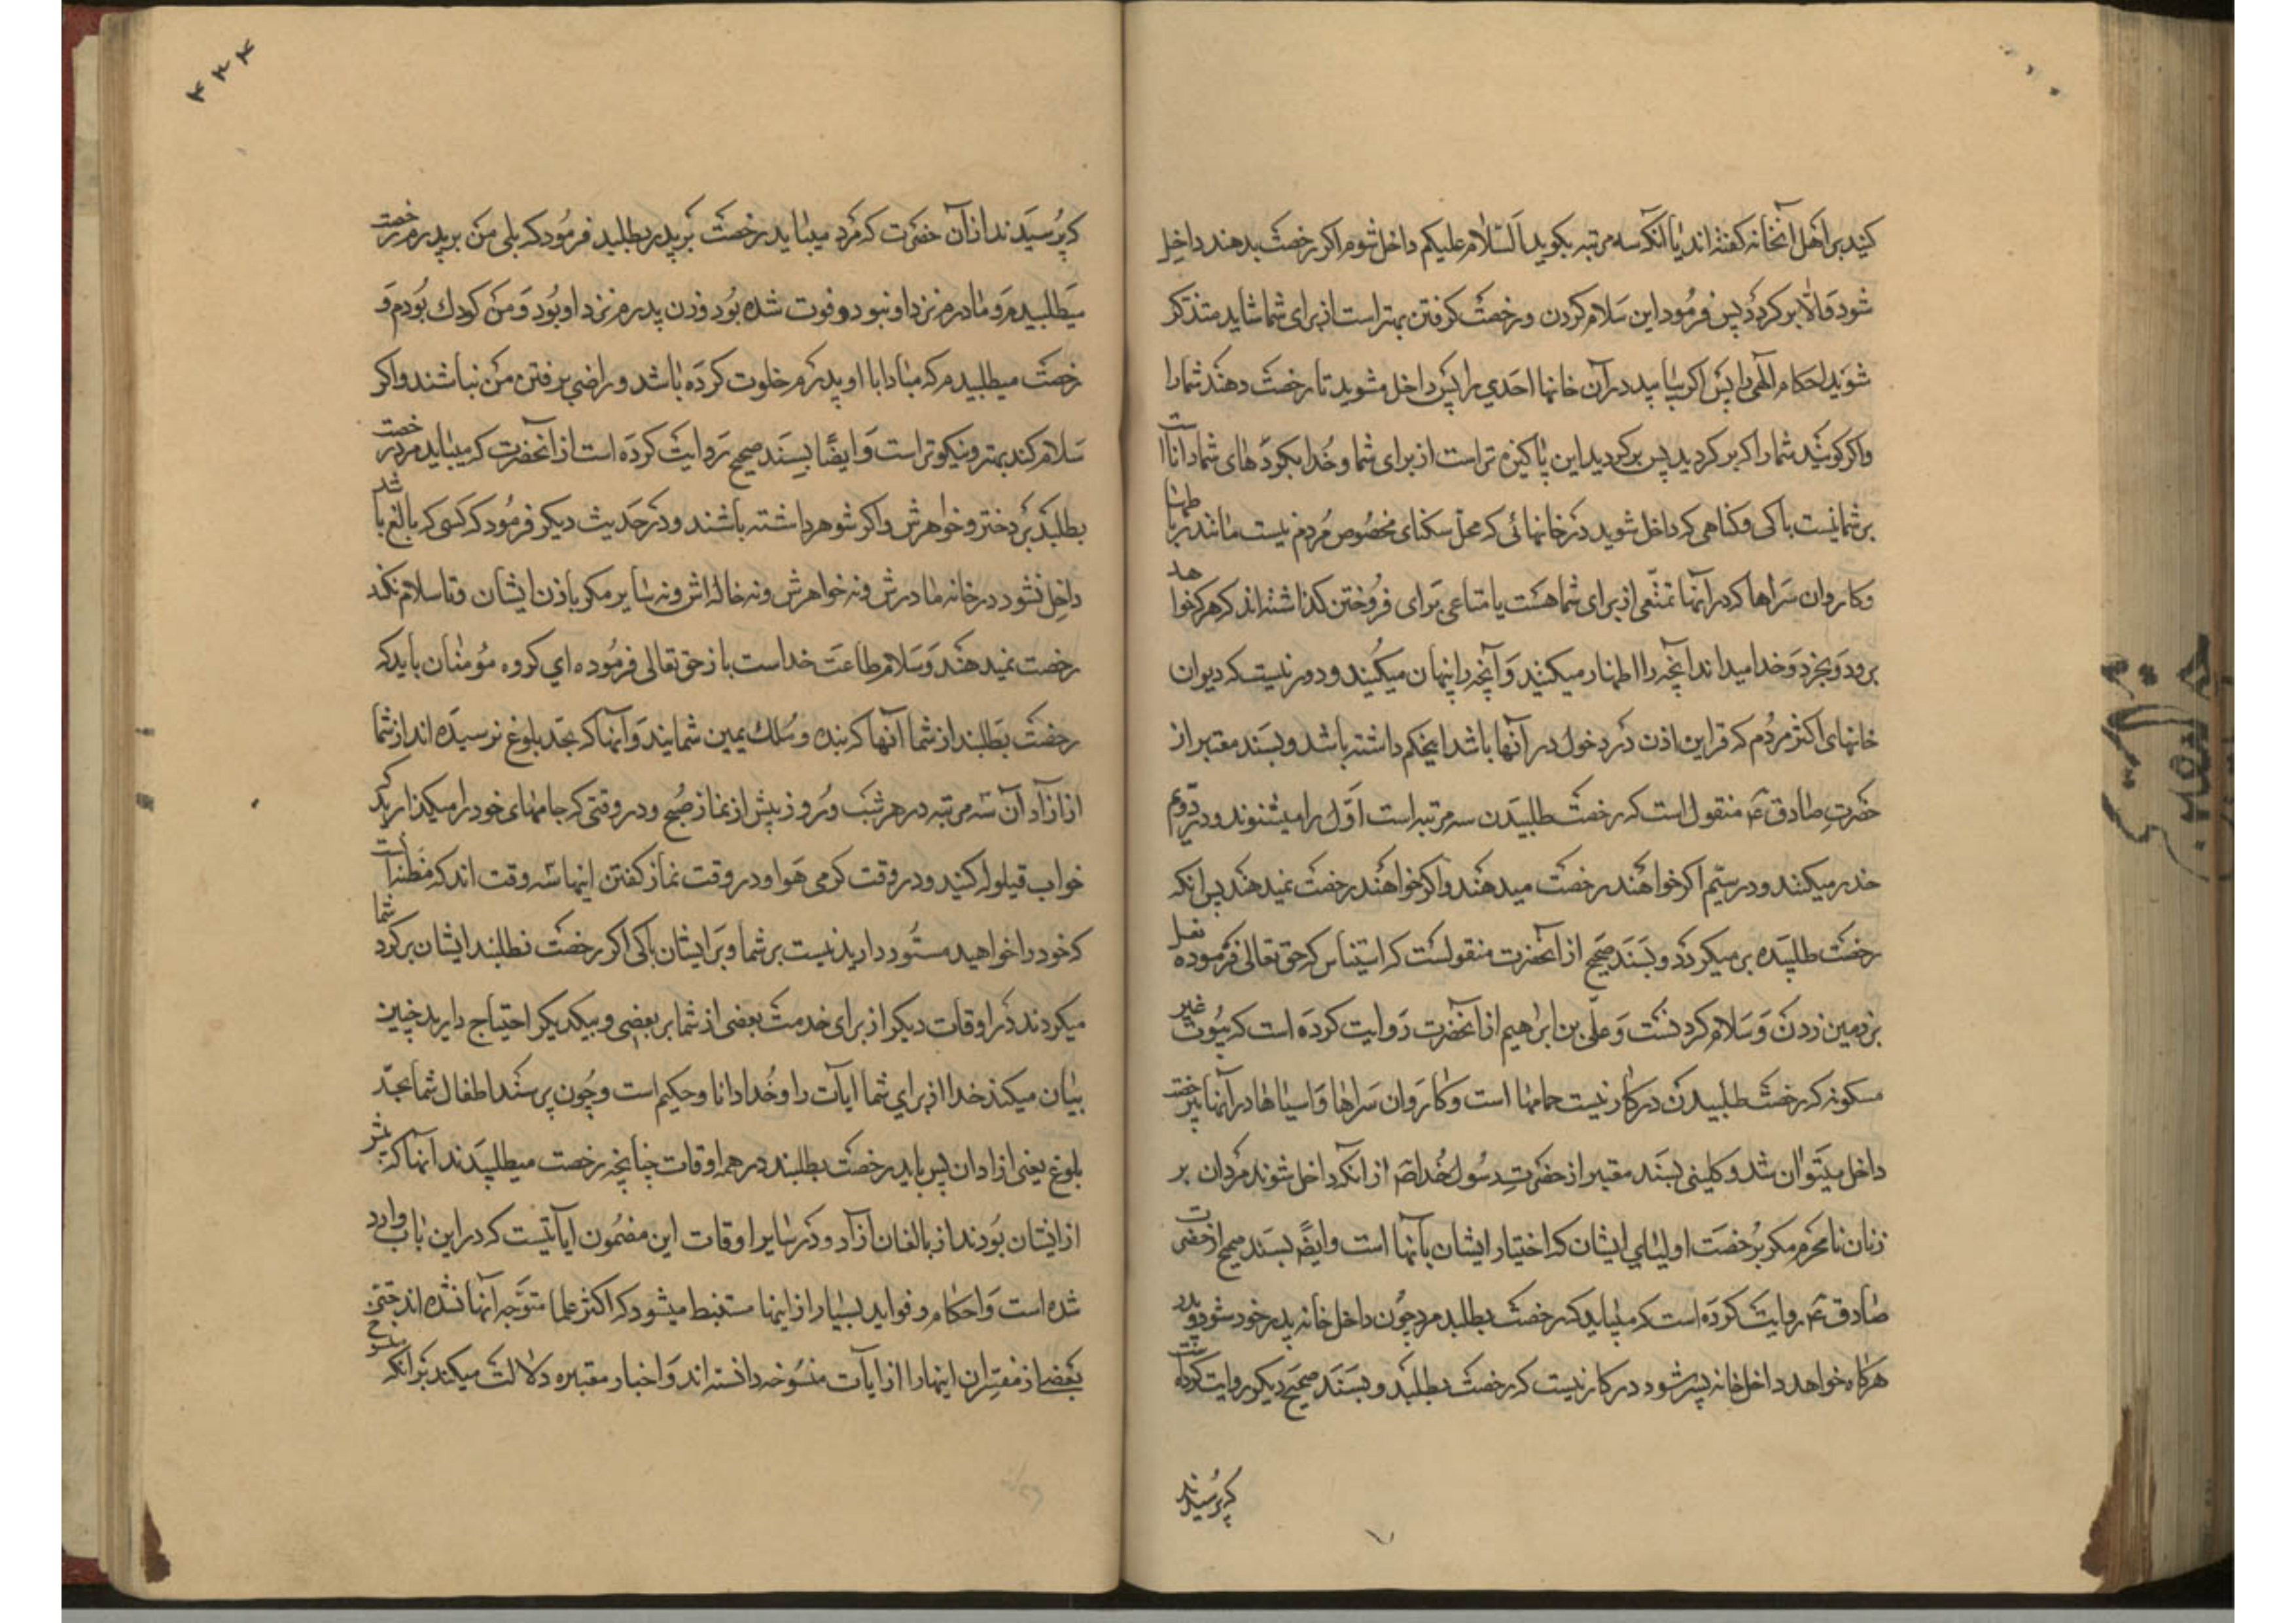 کنید بر اهل آنخانه کفته اند یا آنکه سه مرتبه بکوید السّلام علیکم داخل شوم اکر رخصت بدهند داخل
شود و الّا بر کردد پس فرمود این سلام کردن و رخصت کرفتن بهتر است از برای شما شاید متذکر
شوید احکام آلهی را پس اکر نیابید در آن خانها احدی را پس داخل مشوید تا رخصت دهند شما را
و اکر کویند شما را که بر کردید پس بر کردید این پاکیزه تر است از برای شما و خدا بکردهای شما دانا است
بر شما نیست باکی و کناهی که داخل شوید در خانهائی که محلّ سکنای مخصوص مردم نیست مانند رباطها
و کاروان سراها که در آنها تمتّعی از برای شما هست یا متاعی برای فروختن کذاشته اند که هر که خواهد
برود و بخرد و خدا میداند آنچه را اظهار میکنید و آنچه را پنهان میکنید و دور نیست که دیوان
خانهای اکثر مردم که قراین اذن در دخول در آنها باشد اینحکم داشته باشد و بسند معتبر از
حضرت صادق ع منقول است که رخصت طلبیدن سه مرتبه است اوّل را میشنوند و در دوّم
حذر میکنند و در سیّم اکر خواهند رخصت میدهند و اکر خواهند رخصت نمیدهند پس آنکه
رخصت طلبیده بر میکردد و بسند صحیح از آنحضرت منقولست که استیناس که حق تعالی فرموده نعل
بر زمین زدن و سلام کردنست و علی بن ابراهیم از آنحضرت روایت کرده است که بیوت غیر
مسکونه که رخصت طلبیدن در کار نیست حمامها است و کاروان سراها و آسیاها در آنها بیرخصت
داخل میتوان شد و کلینی بسند معتبر از حضرت رسول خدا ص از آنکه داخل شوند مردان بر
زنان نامحرم مکر برخصت اولیای ایشان که اختیار ایشان بآنها است و ایضً بسند صحیح از حضرت
صادق ع روایت کرده است که میباید که رخصت بطلبد مرد چون داخل خانه پدر خود شود و پدر
هرکاه خواهد داخل خانه پسر شود در کار نیست که رخصت بطلبد و بسند صحیح دیکر روایت کرده است
که پرسیدند
۴۳۴
که پرسیدند از آن حضرت که مرد میباید رخصت بر پدر بطلبد فرمود که بلی من بر پدرم رخصت
میطلبیدم و مادرم نزد او نبود و فوت شده بود و زن پدرم نزد او بود و من کودك بودم و
رخصت میطلبیدم که مبادا با او پدرم خلوت کرده باشد و راضی برفتن من نباشند و اکر
سلام کند بهتر و نیکوتر است و ایضًا بسند صحیح روایت کرده است از آنحضرت که میباید مرد رخصت
بطلبد بر دختر و خواهرش و اکر شوهر داشته باشند و در حدیث دیکر فرمود که کسی که بالغ باشد
داخل نشود در خانه مادرش و نه خواهرش و نه خاله اش و نه سایر مکر باذن ایشان و تا سلام نکند
رخصت نمیدهند و سلام طاعت خداست باز حق تعالی فرموده ای کروه مؤمنان باید که
رخصت بطلبند از شما آنها که بنده و ملك یمین شمایند و آنها که بحدّ بلوغ نرسیده اند از شما
از ازآدآن سه مرتبه در هر شب و روز پیش از نماز صبح و در وقتی که جامهای خود را میکذارید که
خواب قیلوله کنید و در وقت کرمی هوا و در وقت نماز کفتن اینها سه وقت اند که مظنه است
که خود را خواهید مستور دارید نیست بر شما و بر ایشان باکی اکر رخصت نطلبند ایشان بر کرد شما
میکردند در اوقات دیکر از برای خدمت بعضی از شما بر بعضی و بیکدیکر احتیاج دارید چنین
بیان میکند خدا از برای شما ایات را و خدا دانا و حکیم است و چون برسند اطفال شما بحدّ
بلوغ یعنی ازادان پس باید رخصت بطلبند در همه اوقات چنانچه رخصت میطلبیدند آنها که پیش
از ایشان بودند از بالغان ازآد و در سایر اوقات این مضمون آیاتیست که در این باب وارد
شده است و احکام و فواید بسیار از اینها مستنبط میشود که اکثر علما متوجه آنها نشده اند حتی
بعضی از مفسّران اینها را از ایات منسوخه دانسته اند و اخبار معتبره دلالت میکند بر آنکه منسوخ